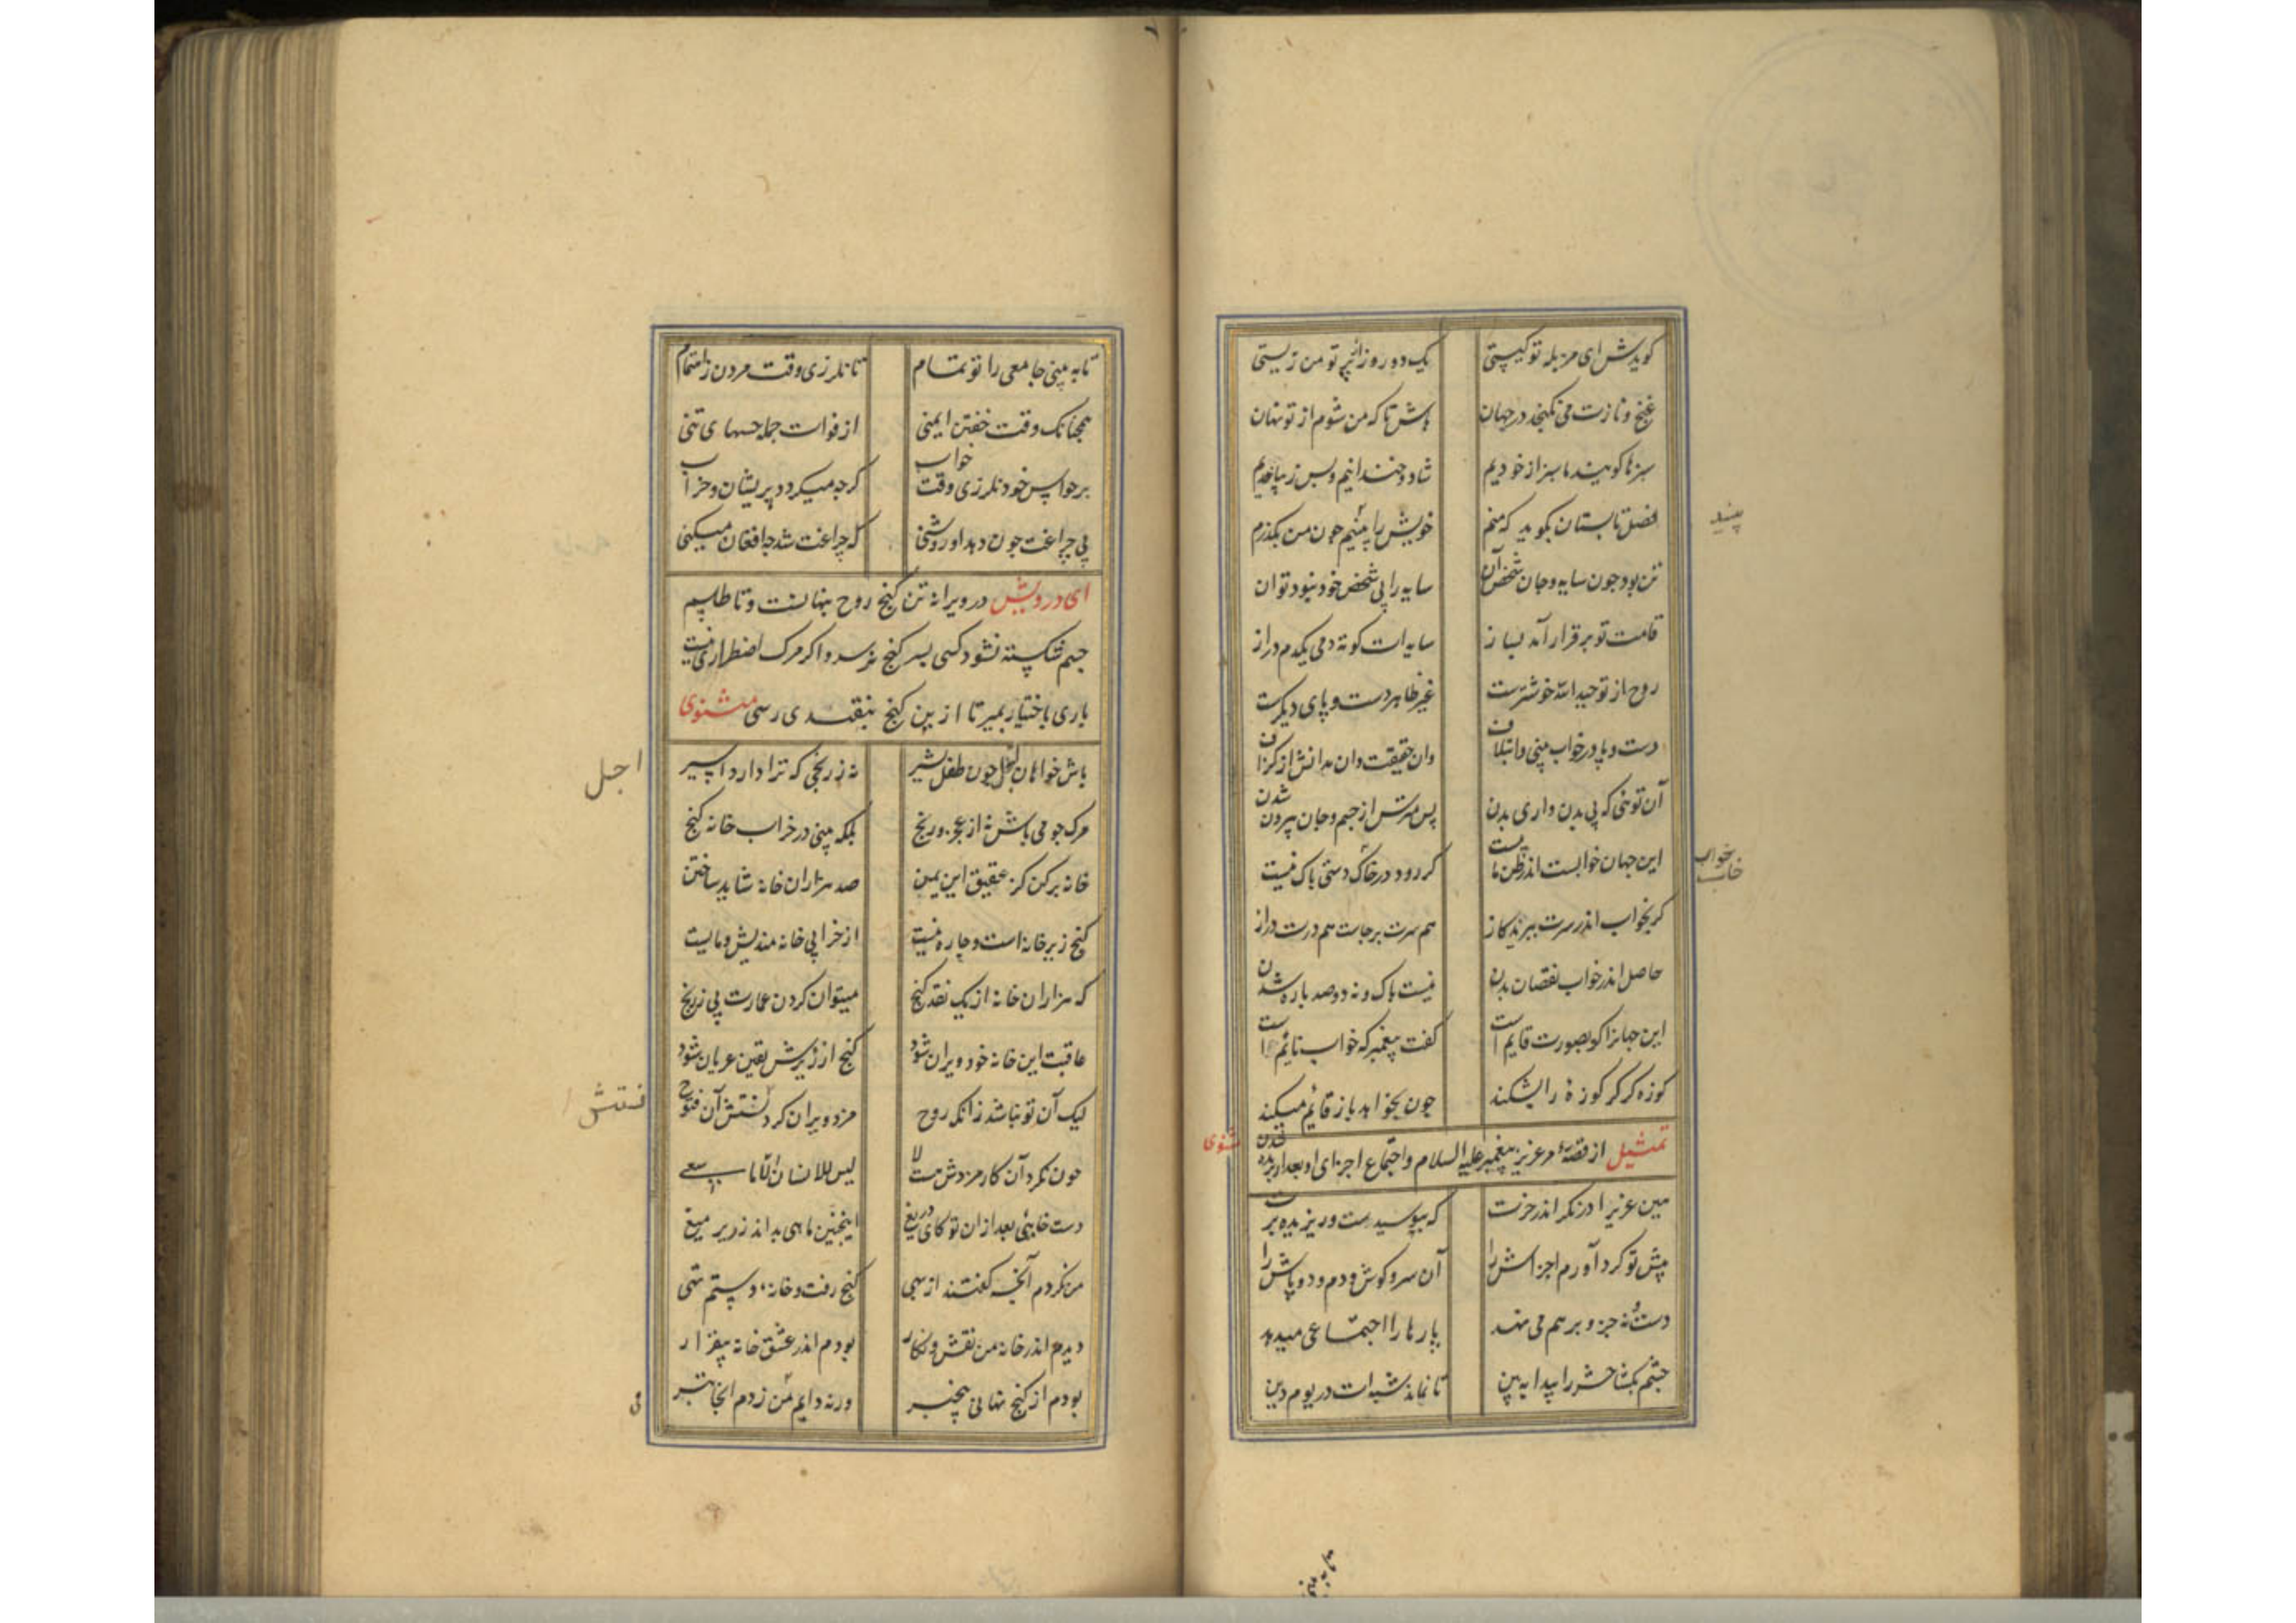 کویدش ای مزبله تو کیستی یک دو روز از پرتو من زیستی
غنج و نازت می نکنجد در جهان باش تا که من شوم از تو نهان
سبزها کویند ما سبز از خودیم شاد و خندانیم و بس زیبا خدیم
فصل تابستان بکوید که منم خویش را بینیم چون من بکذرم
پیند
تن بود چون سایه و جان شخص آن سایه را بی شخص خود نبود توان
قامت تو برقرار آمد بساز سایه ات کوته دمی یکدم دراز
روح از توحید الله خوشترست غیر ظاهر دست و پای دیکرست
دست و پا در خواب بینی و ائتلاف وان حقیقت دان مدانش از کزاف
آن توئی که بی بدن داری بدن پس مترس از جسم و جان بیرون شدن
این جهان خوابست اندر ظن مایست کر رود در خاک دستی باک نیست
خواب
خاب
کر بخواب اندر سرت ببرید کاز هم سرت برجاست هم درت دراز
حاصل اندر خواب نقصان بدن نیست باک و نه دو صد باره شدن
این جهانرا کو بصورت قایم است کفت پیغمبر که خواب نائم است
کوزه کر کر کوزهٔ را بشکند چون بخواهد باز قائم میکند
تمثیل از قصهٔ عزیز پیغمبر علیه السلام و اجتماع اجزای او بعد از
مثنوی
هین عزیرا درنکر اندر خرت که بپوسیدست و ریزیده برت
پیش تو کرد آورم اجزاش را آن سر و کوش و دم و دو پاش را
دست نه جزو بر هم می نهد پارها را اجتماعی میدهد
چشم بکشا حشر را پیدا به بین تا نماند شبهات در یوم دین
تا به بینی
تا به بینی جامعی را تو تمام تا نلرزی وقت مردن ز اهتمام
همچنانک وقت خفتن ایمنی از فوات جمله حسهای تنی
بر حواس خود نلرزی وقت خواب کرچه میکردد پریشان و خراب
بی چراغت چون دهد او روشنی که چراغت شد چه افغان میکنی
ای درویش در ویرانهٔ تن کنج روح پنهانست و تا طلسم
جسم شکسته نشود کسی بسر کنج نرسد و اکر مرک اضطراری نیست
باری باختیار بمیر تا ازین کنج بنقدی رسی مثنوی
باش خواهان اجل چون طفل شیر نه ز رنجی که ترا دارد اسیر
اجل
مرک جو می باش نه از عجز و رنج بلکه بینی در خراب خانه کنج
خانه برکن کز عقیق این یمن صد هزاران خانه شاید ساختن
کنج زیر خانه است و چاره نیست از خرابی خانه مندیش و مایست
که هزاران خانه از یک نقد کنج میتوان کردن عمارت بی ز رنج
عاقبت این خانه خود ویران شود کنج از زیرش یقین عریان شود
لیک آن تو نباشد زانکه روح مزد ویران کردنستش آن فتوح
ستش
چون نکرد آن کار مزدش هست لا لیس للانسان الا ما سعی
دست خایی بعد از ان تو کای دریغ اینچنین ماهی بد اندر زیر میغ
من نکردم آنچه کفتند از بهی کنج رفت و خانه و دستم تهی
دیدم اندر خانه من نقش و نکار بودم اندر عشق خانه بیقرار
بودم از کنج نهانی بیخبر ورنه دایم من زدم انجا تبر